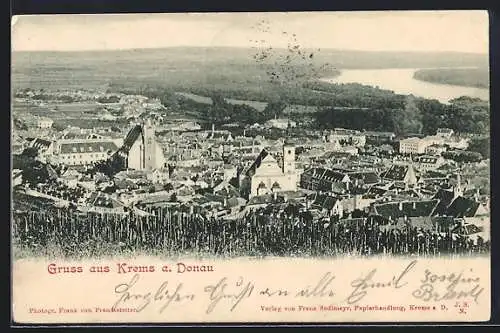 Gruss aus Krems a. Donau
Herzlichen Gruß an alle Emil Josefine
Photogr. Franz von
Verlag von Franz Sedlmayr, Papierhandlung, Krems a D.
J. B.
N.